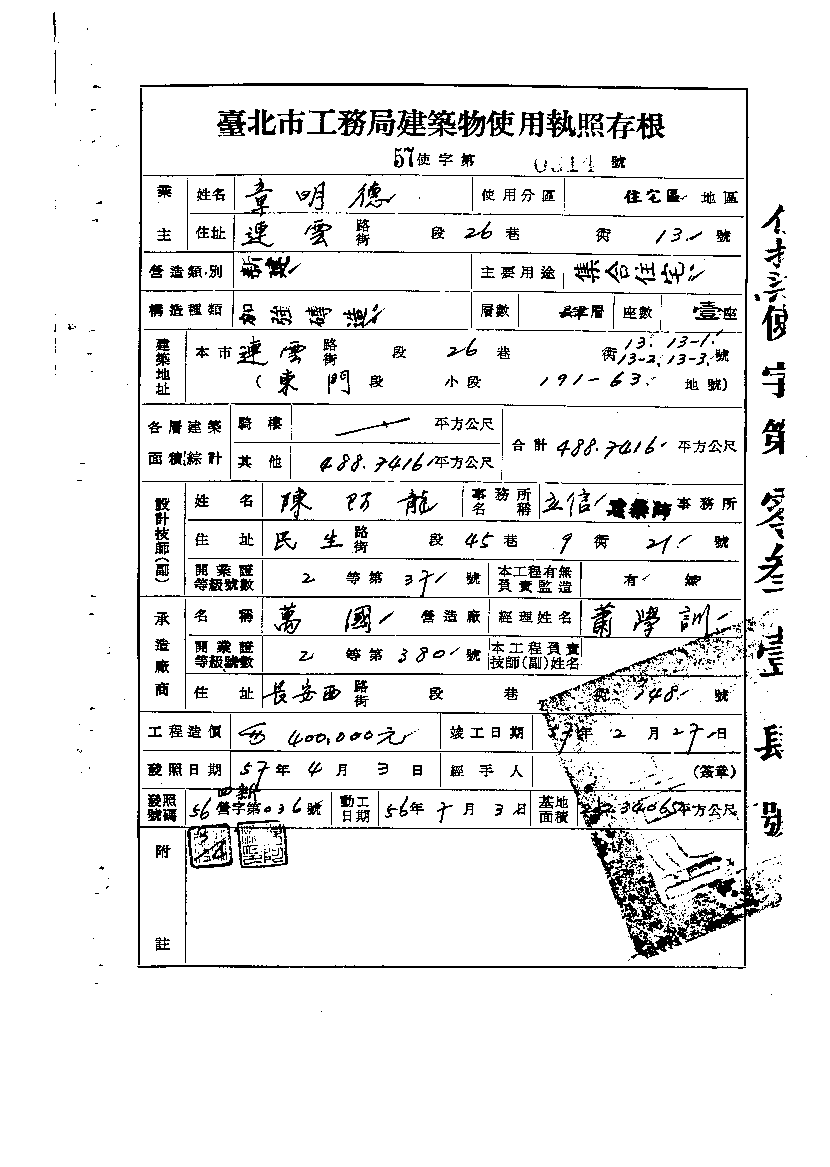 臺北市工務局建築物使用執照存根
57使字第 0314 號
業主 姓名 章明德 使用分區 住宅區 地區
住址 連雲 路街 段 26 巷 衖 13 號
營造類別 新建 主要用途 集合住宅
構造種類 加強磚造 層數 層 座數 壹座
建築地址 本市 連雲 路街 段 26 巷 衖 13. 13-1. 13-2. 13-3. 號
(東門 段 小段 191-63 地號)
各層建築面積綜計 騎樓 平方公尺 合計 488.7416 平方公尺
其他 488.7416 平方公尺
設計技師(副) 姓名 陳阿龍 事務所名稱 立信 建築師 事務所
住址 民生 路街 段 45 巷 9 衖 21 號
開業證等級號數 2 等第 371 號 本工程有無負責監造 有 無
承造廠商 名稱 萬國 營造廠 經理姓名 蕭學訓
開業證等級號數 2 等第 380 號 本工程負責技師(副)姓名
住址 長安西 路街 段 巷 衖 148 號
工程造價 400,000元 竣工日期 57年 2 月 27 日
發照日期 57 年 4 月 3 日 經手人 (簽章)
發照號碼 56 營字第036號 動工日期 56年 7 月 3 日 基地面積 平方公尺
附註
使字第零叁壹 號